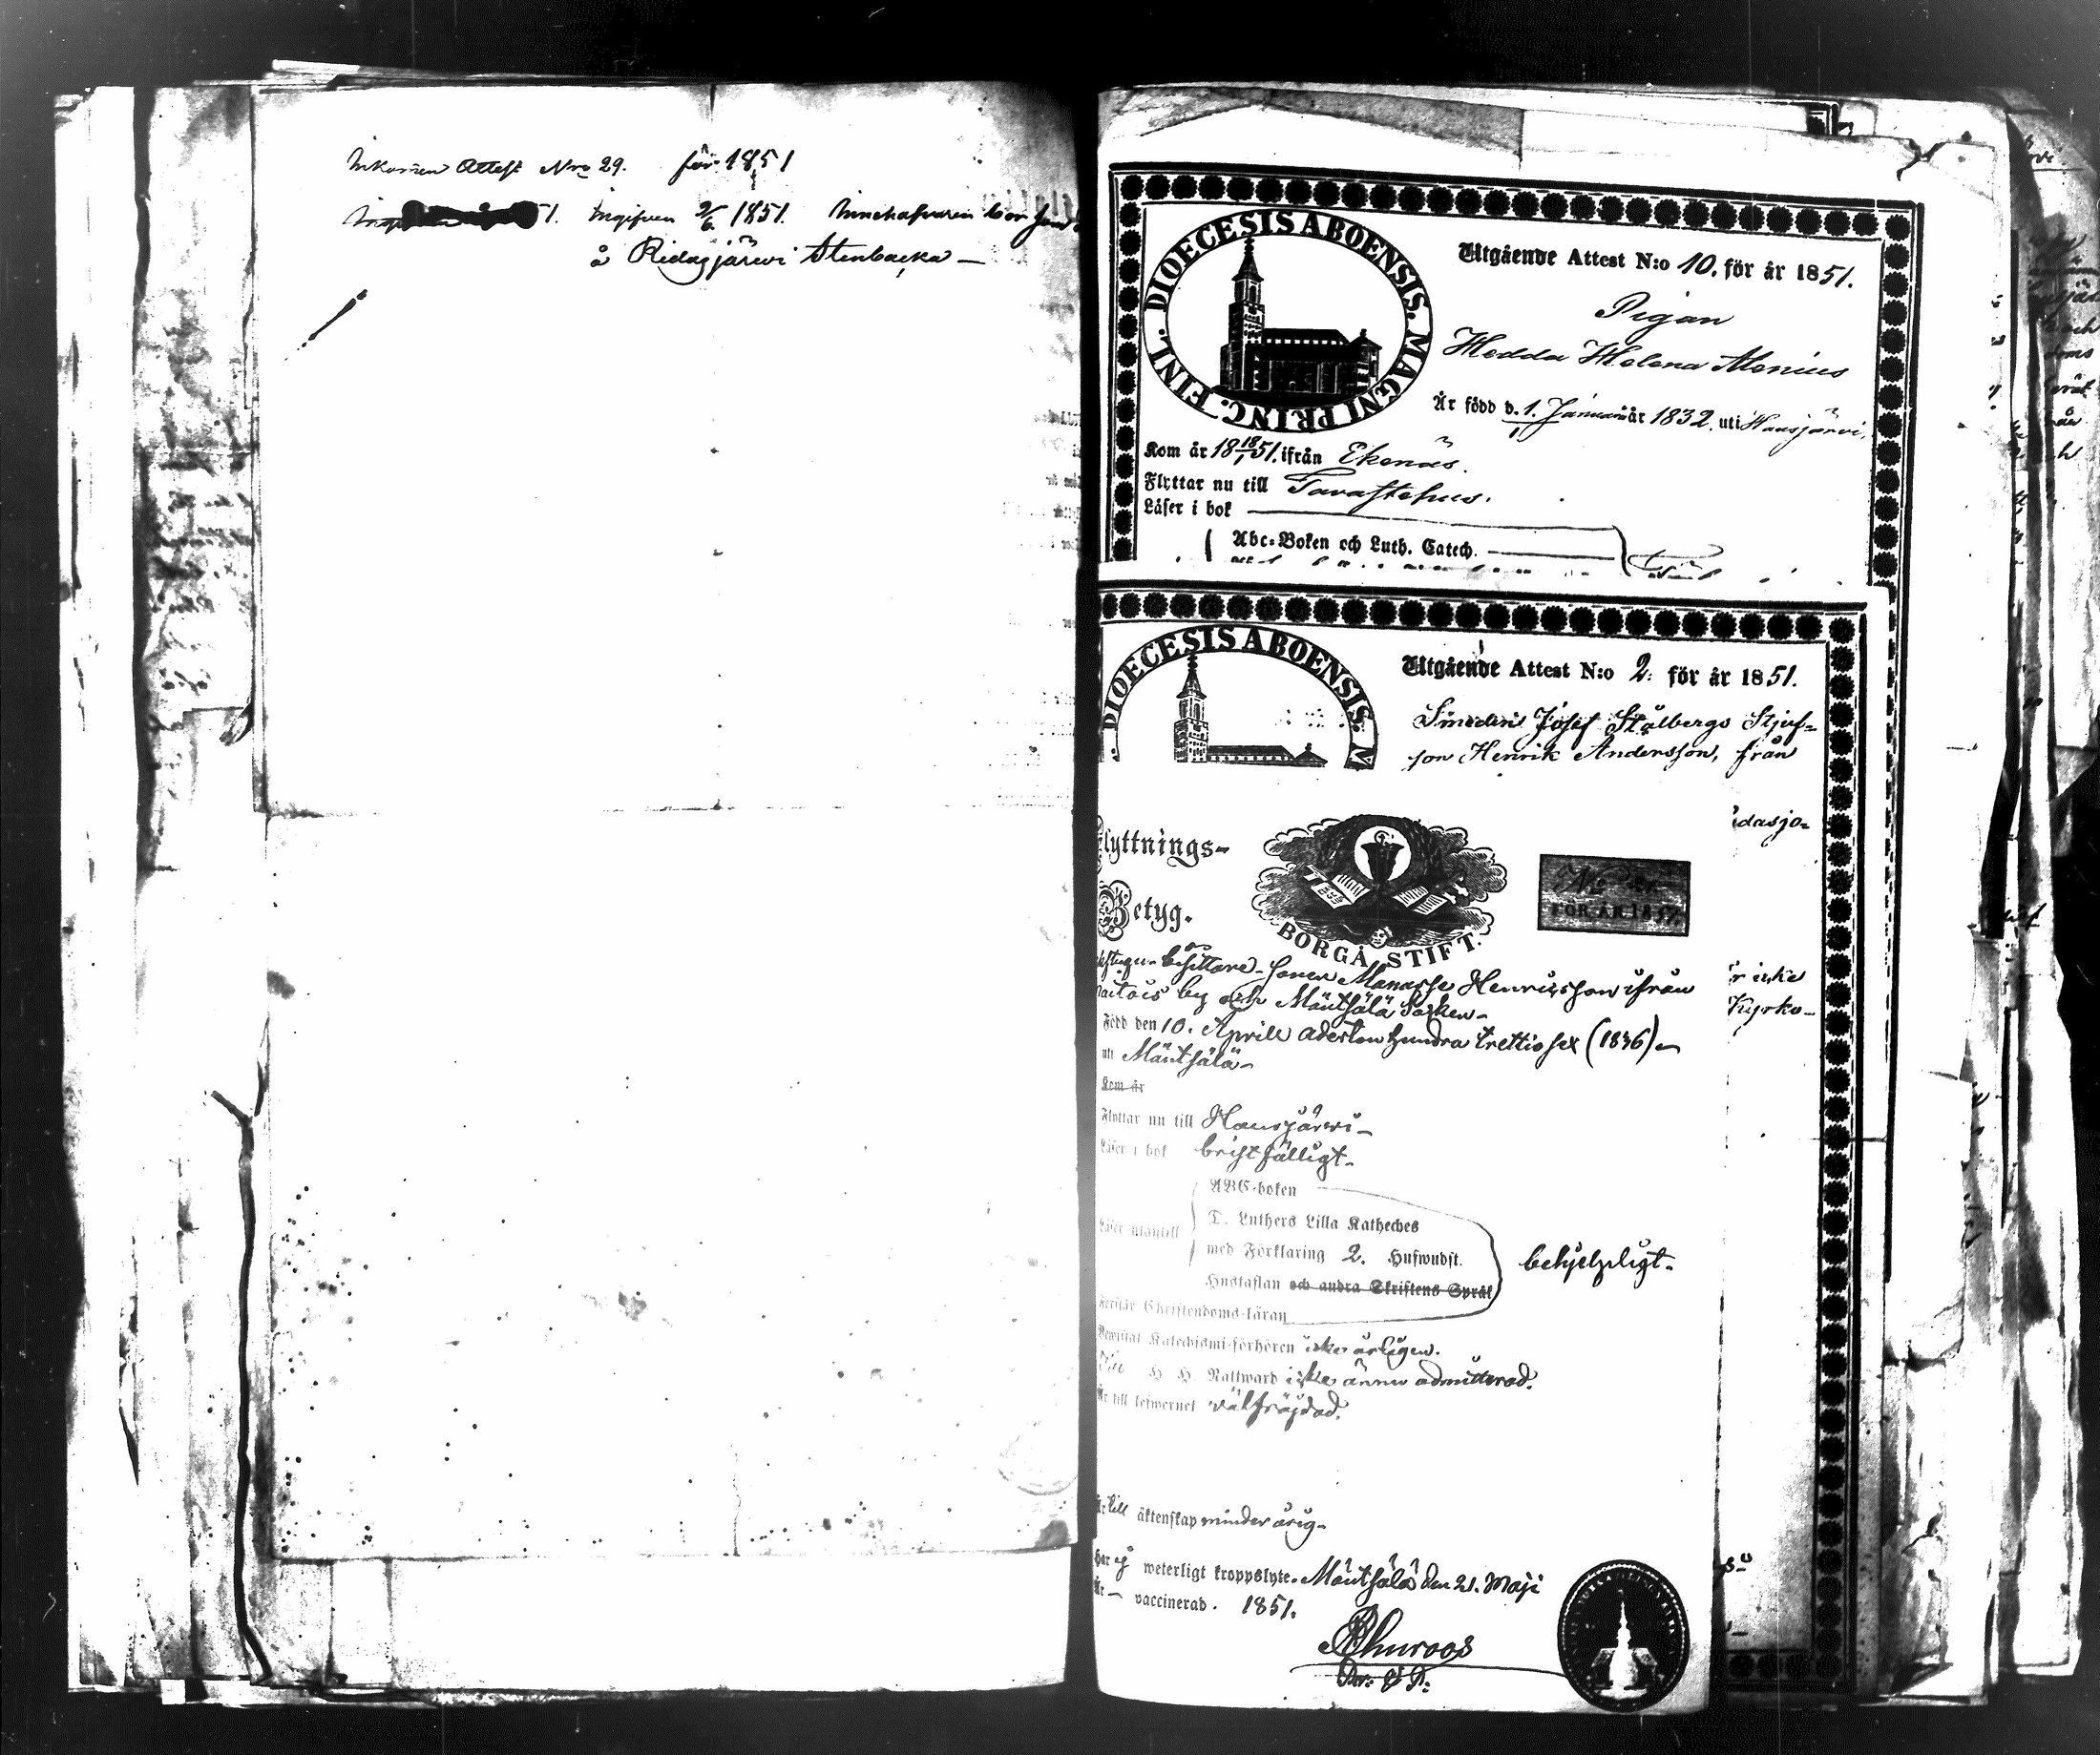 Inkommen Attest Nro 29. för 1851
Ingifven 2/6 1851. Innehafvaren bor
å Ridasjärwi Stenbacka
DIOECESIS ABOENSIS. MAGNI PRINC. FINL.
Utgående Attest N:o 10. för år 1851.
Pigan
Hedda Helena Alenius
Är född d. 1. Januari år 1832. uti Hausjärvi.
Kom år 18 18/1 51. ifrån Ekenäs.
Flyttar nu till Tavastehus.
Läser i bok
Abc-Boken och Luth. Catech.
DIOECESIS ABOENSIS. M
Utgående Attest N:o 2. för år 1851.
Smeden Josef Stålbergs Stjuf-
son Henrik Andersson, från
idasjo-
lyttnings-
Betyg.
BORGÅ STIFT.
FÖR ÅR 1851.
besittare-sonen Manasse Henriksson ifrån
by och Mäntsälä Socken-
Född den 10. Aprill adertonhundra trettiosex (1836)
uti Mäntsälä-
Kom år
Flyttar nu till Hausjärwi-
Läser i bok bristfälligt-
ABC-boken
D. Luthers Lilla Katheches
Läser utantill
med Förklaring 2. Hufwudst.
Hustaflan och andra Skriftens Språk
behjelpligt-
Förstår Christendoms-läran
Bewistat Katechismi-förhören icke årligen.
H. H. Nattward icke ännu admitterad.
Är till lefwernet välfräjdad.
icke
Kyrko-
Är till äktenskap minderårig-
Har ej weterligt kroppslyte. Mäntsälä den 21. Maji
Är - vaccinerad. 1851.